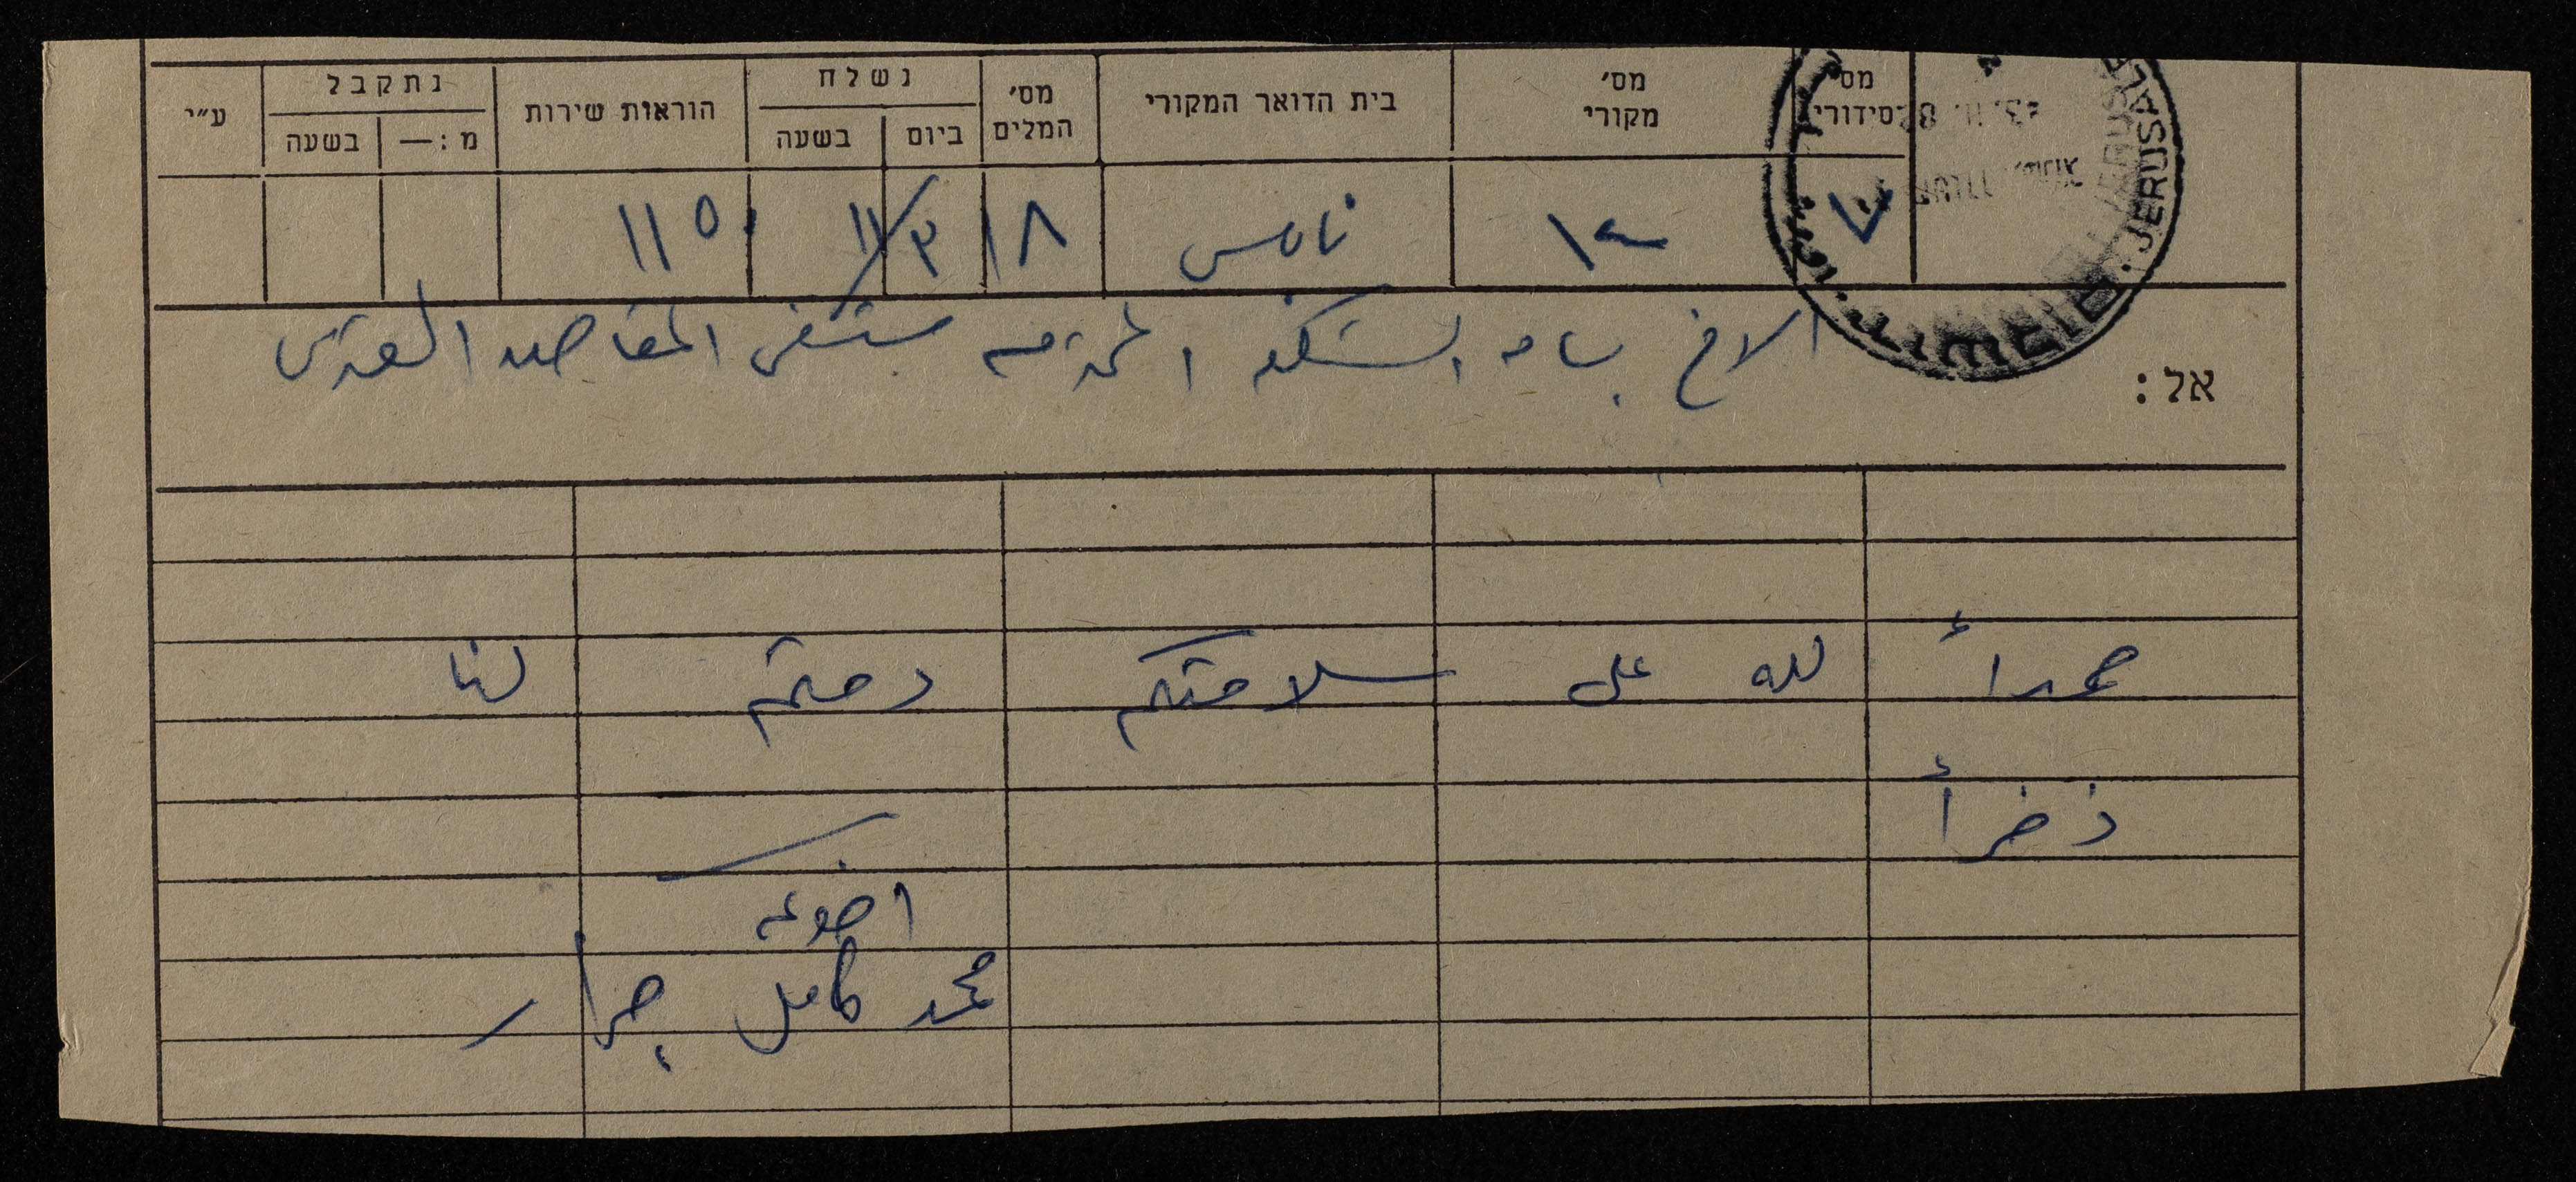 מס׳ סידורי מס׳ מקורי בית הדואר המקורי מס׳ המלים נשלח ביום בשעה הוראות שירות נתקבל מ:— בשעה ע״י
٧ نابلس ١٨ ١١/٣ ١١٥٠
JERUSALEM
אל:
الاخ بسام الشكعه المحترم مستشفى المقاصد القدس
حمداً لله على سلامتكم ودمتم لنا
ذخراً
اخوكم
محمد كامل جرار